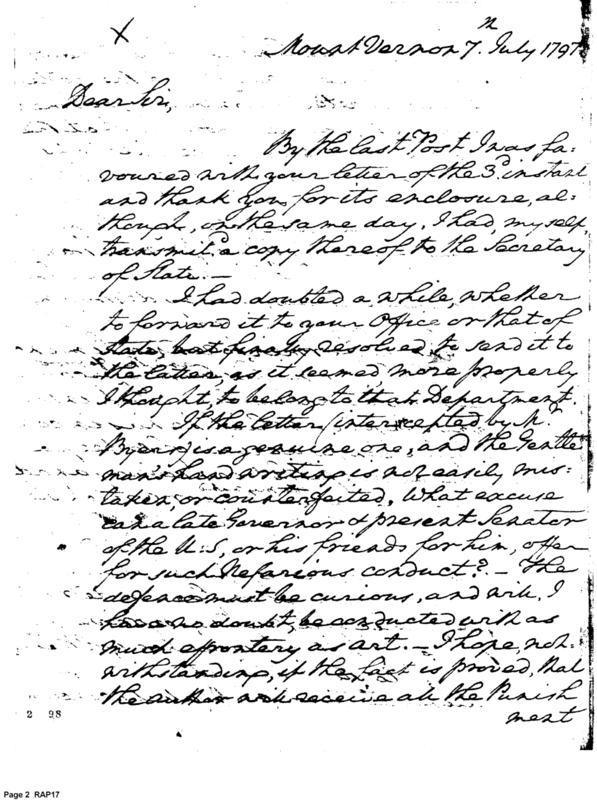 Mount Vernon 7th July 1797
Dear Sir,
By the last Post I was fa:
voured with your letter of the 3d. instant
and thank you for its enclosure, al:
though, on the same day, I had, myself,
transmitd. a copy thereof to the Secretary
of State.—
I had doubted a while, whether
to forward it to your Office or that of
State, but finally resolved to send it to
the latter, as it seemed more properly
I thought, to belong to that Department.
If the letter (intercepted by Mr.
Byers) is a genuine one, and the Gentle
man's hand writing is not easily mis:
taken, or counterfeited, What excuse
can a late Governor & present Senator
of the U:S, or his friends for him, offer
for such Nefarious conduct?— The
defence must be curious, and will, I
have no doubt, be conducted with as
much effrontery as art.— I hope, not:
withstanding, if the fact is proved, that
the author will receive all the Punish
ment
2 98
Page 2 RAP17